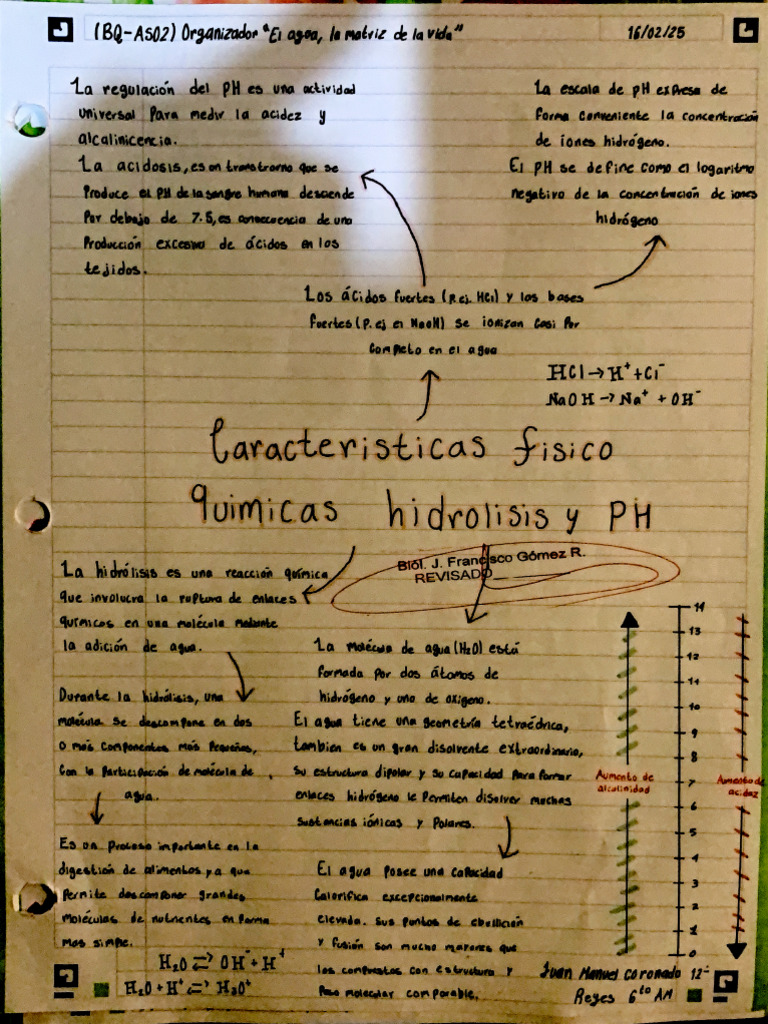 (BQ-AS02) Organizador "El agua, la matriz de la vida"
16/02/25
La regulación del PH es una actividad
universal Para medir la acidez y
alcalinicencia.
La acidosis, es un transtrorno que se
Produce el PH de la sangre humana desciende
Por debajo de 7.5, es consecuencia de una
Producción excesiva de ácidos en los
tejidos.
La escala de pH expresa de
Forma conveniente la concentración
de iones hidrógeno.
El PH se define como el logaritmo
negativo de la concentración de iones
hidrógeno
Los ácidos fuertes (P.ej. HCl) y las bases
fuertes (P. ej el NaOH) se ionizan casi Por
Completo en el agua
HCl → H⁺ + Cl⁻
NaOH → Na⁺ + OH⁻
Caracteristicas fisico
quimicas hidrolisis y PH
Biól. J. Francisco Gómez R.
REVISADO
La hidrólisis es una reacción química
que involucra la ruptura de enlaces
químicos en una molécula mediante
la adición de agua.
Durante la hidrólisis, una
molécula se descompone en dos
o más componentes más Pequeños,
Con la Participación de molécula de
agua.
Es un proceso importante en la
digestión de alimentos, ya que
Permite descomponer grandes
moléculas de nutrientes en forma
mas simple.
H₂O ⇌ OH⁻ + H⁺
H₂O + H⁺ ⇌ H₃O⁺
La molécula de agua (H2O) está
formada por dos átomos de
hidrógeno y uno de oxigeno.
El agua tiene una geometría tetraédrica,
tambien es un gran disolvente extraordinario,
su estructura dipolar y su capacidad Para formar
enlaces hidrógeno le Permiten disolver muchas
sustancias iónicas y Polares.
El agua posee una capacidad
Calorifica excepcionalmente
elevada. sus puntos de ebullición
y fusión son mucho mayores que
los compuestos con estructura y
Peso molecular comparable.
14
13
12
11
10
9
8
7
6
5
4
3
2
1
0
Aumento de
alcalinidad
Aumento de
acidez
Juan Manuel Coronado 12-
Reyes 6to AM